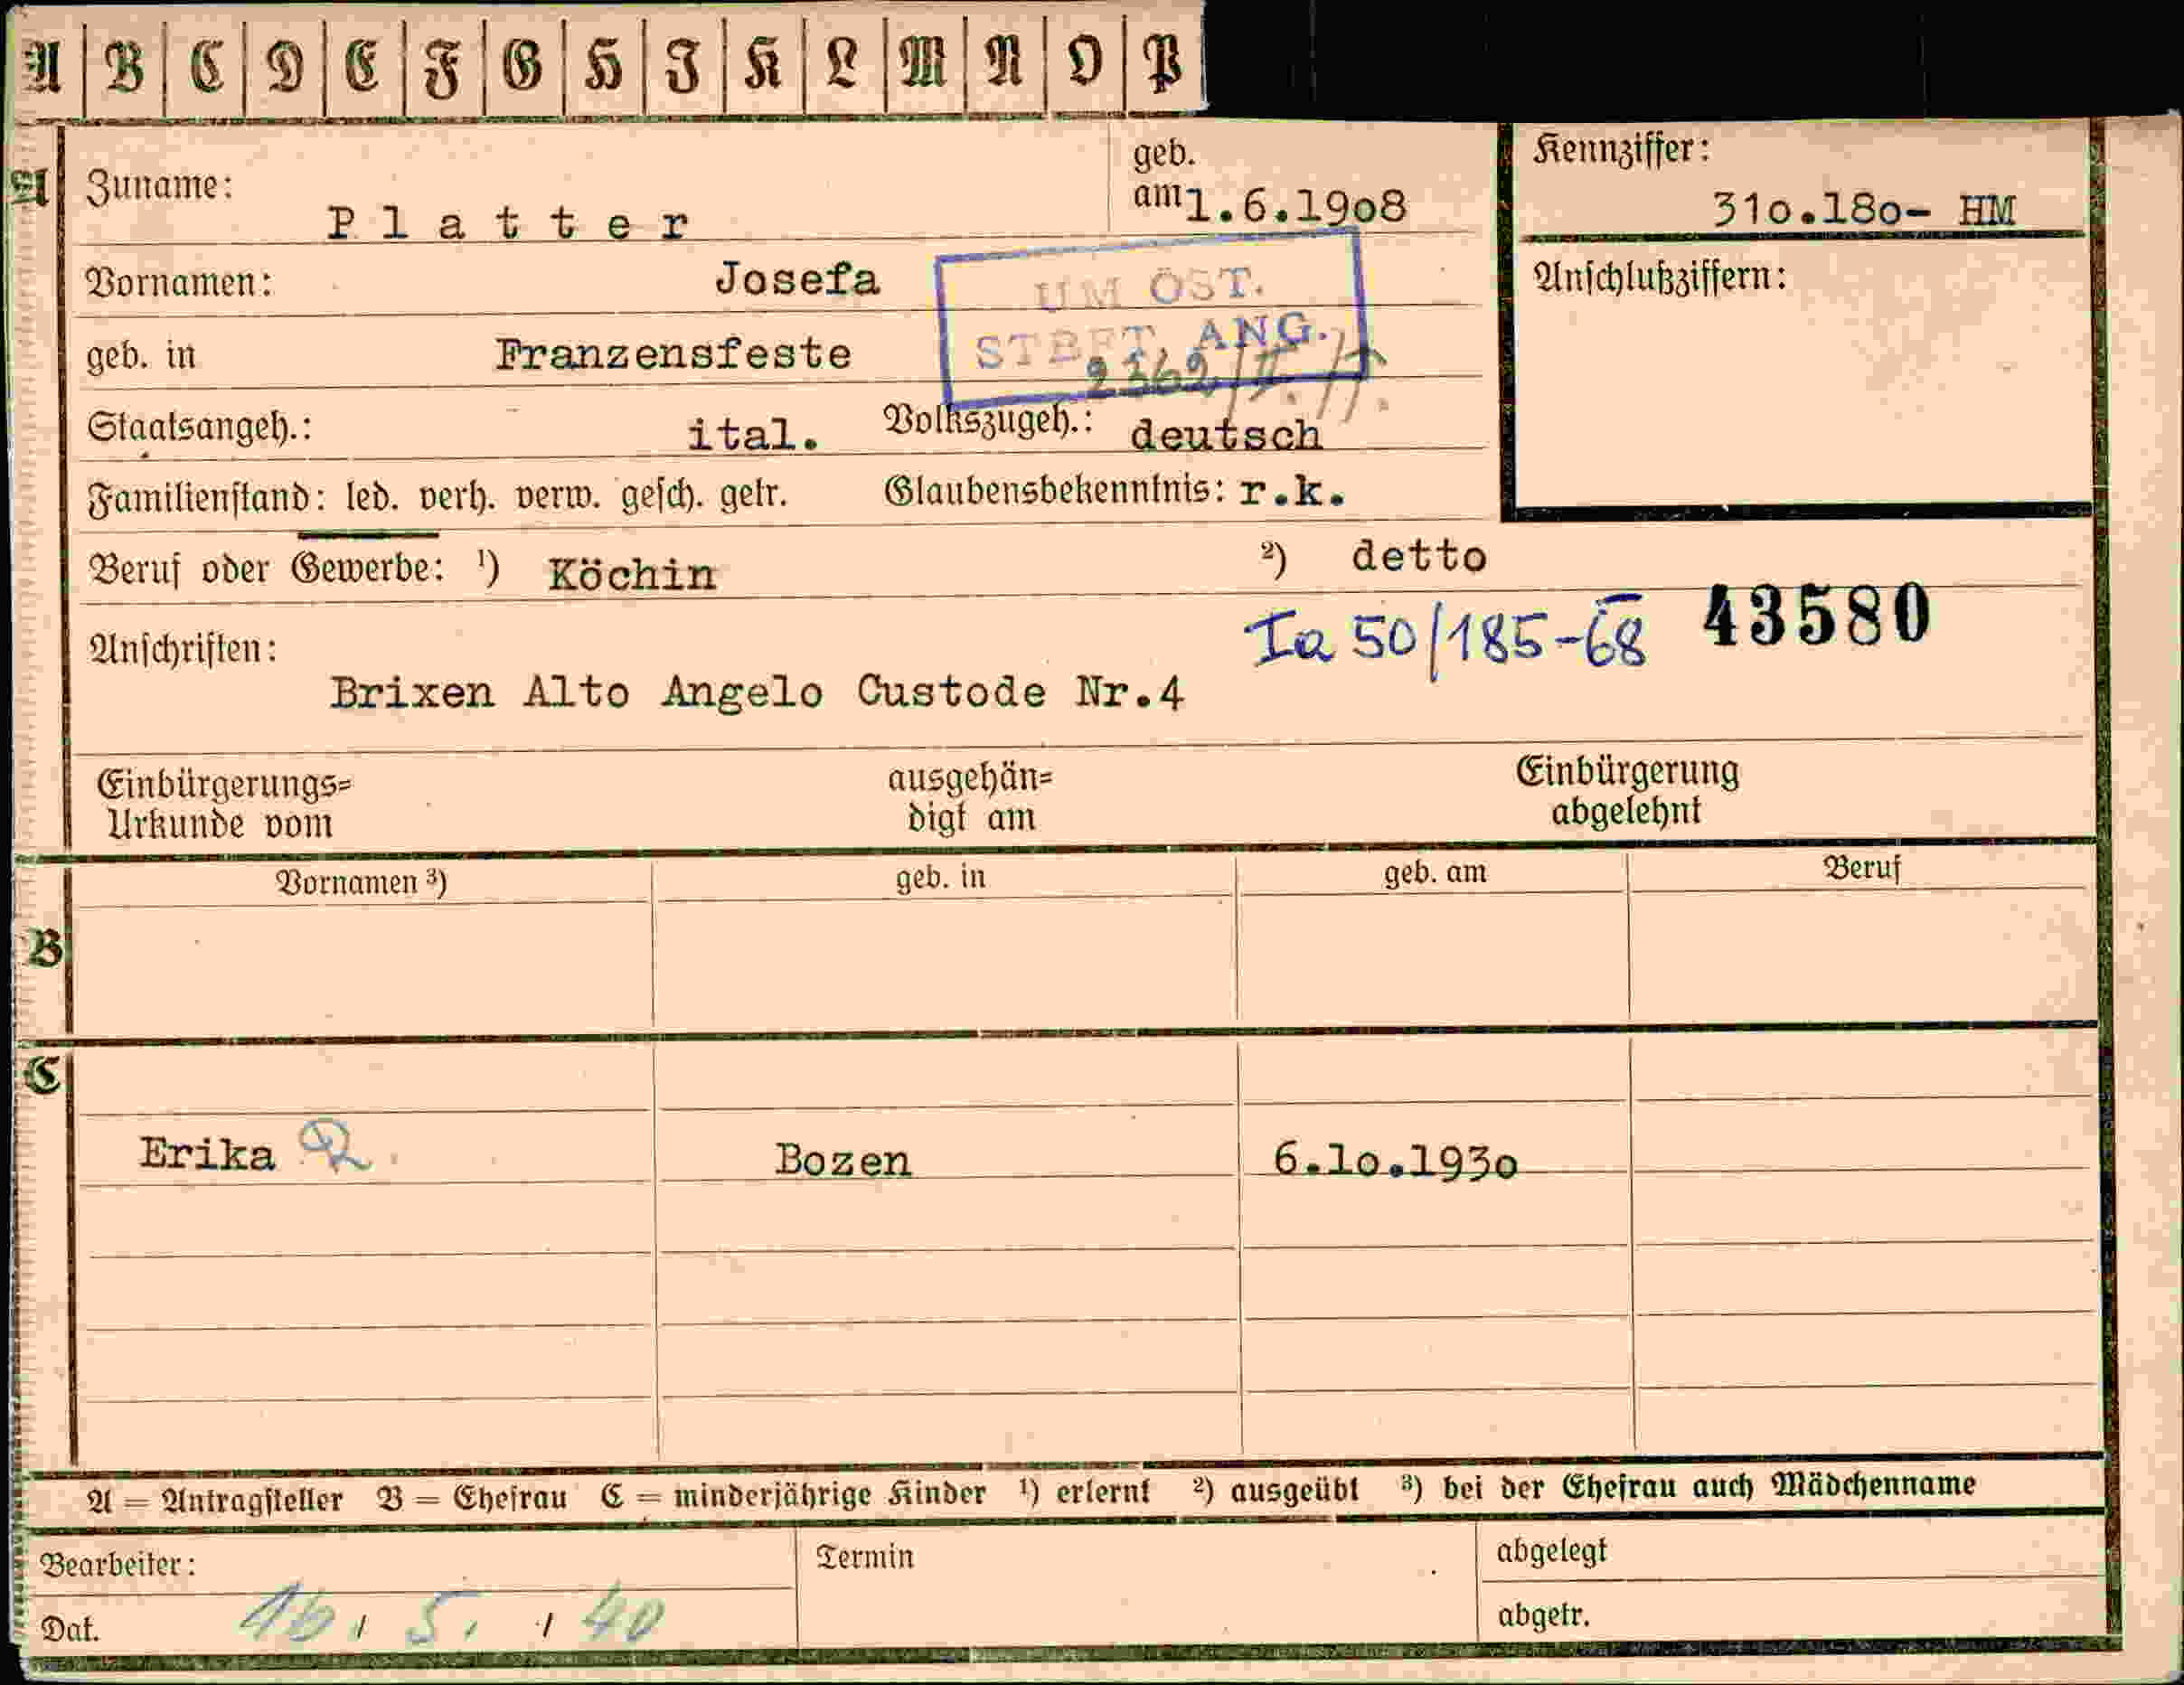 A B C D E F G H I K L M N O P
A
Zuname: Platter geb. am 1.6.1908
Kennziffer: 310.180- HM
Vornamen: Josefa
UM ÖST.
STBFT. ANG.
Anschlußziffern:
geb. in Franzensfeste
Staatsangeh.: ital. Volkszugeh.: deutsch
Familienstand: led. verh. verw. gesch. getr. Glaubensbekenntnis: r.k.
Beruf oder Gewerbe: ¹) Köchin ²) detto
Ia 50/185-68 43580
Anschriften:
Brixen Alto Angelo Custode Nr.4
Einbürgerungs= Urkunde vom
ausgehän= digt am
Einbürgerung abgelehnt
Vornamen ³) geb. in geb. am Beruf
B
C
Erika Bozen 6.10.1930
A = Antragsteller B = Ehefrau C = minderjährige Kinder ¹) erlernt ²) ausgeübt ³) bei der Ehefrau auch Mädchenname
Bearbeiter: Termin abgelegt
Dat. 16. 5. 40 abgetr.